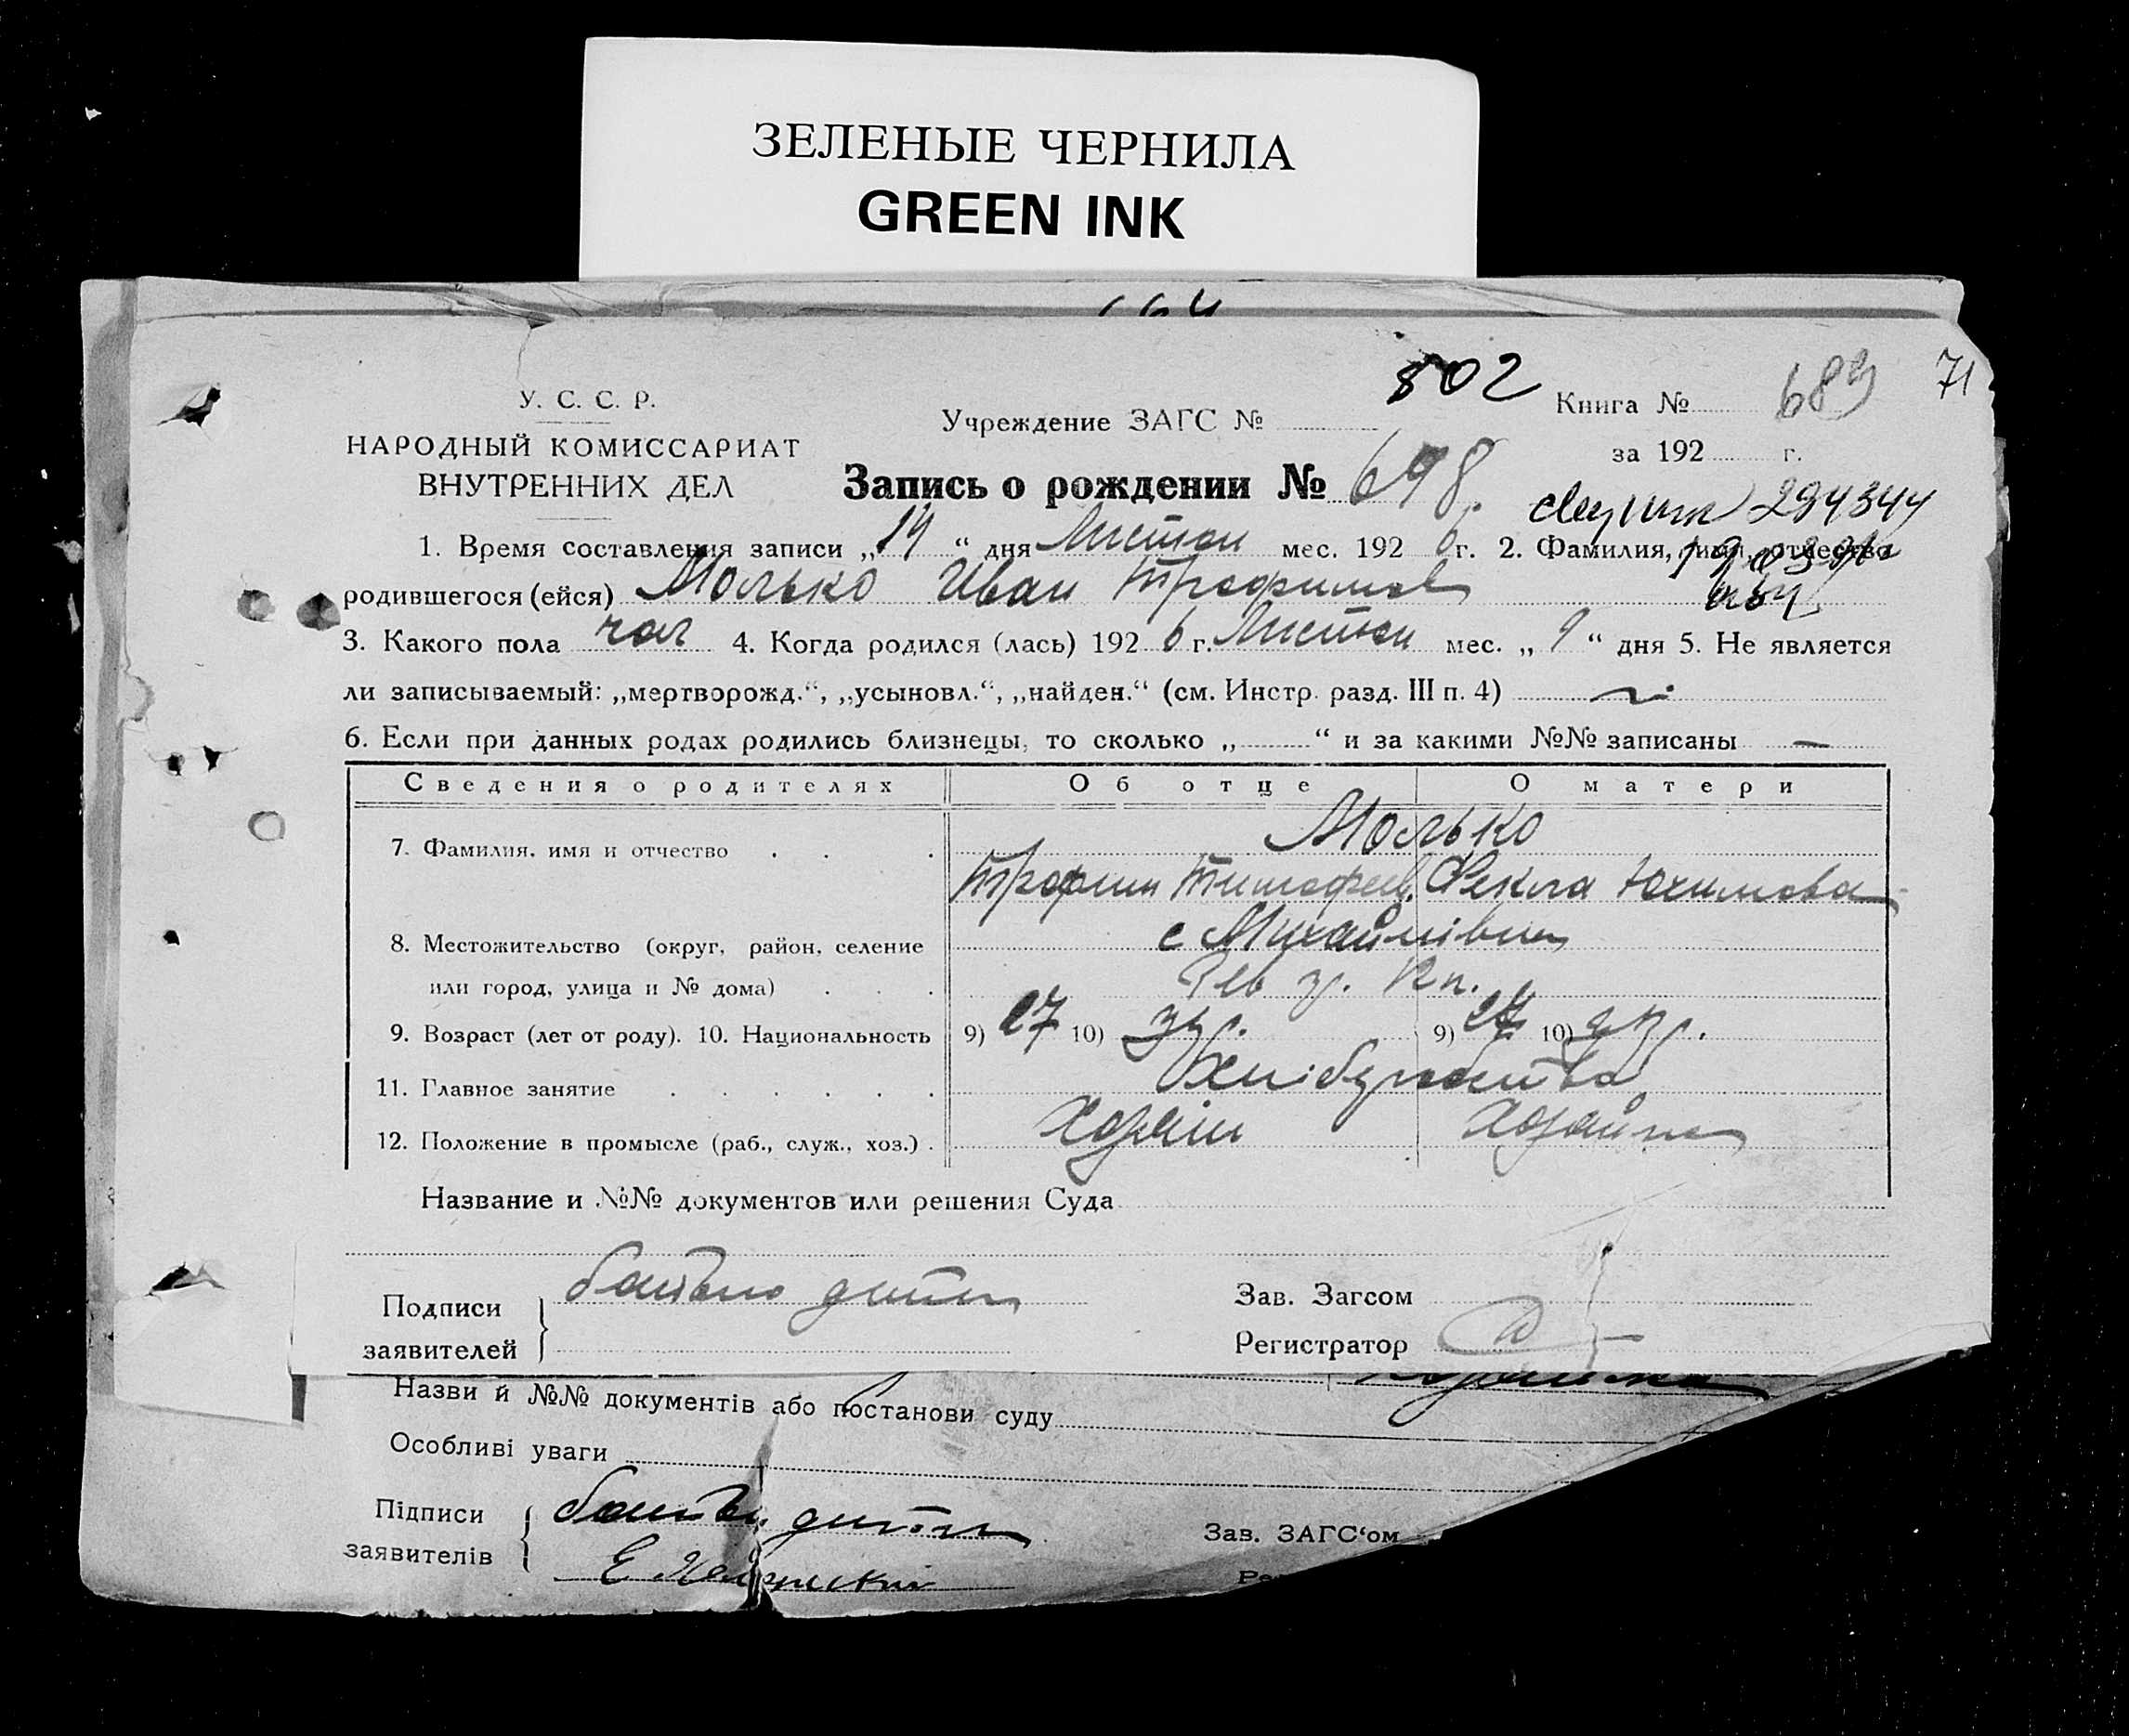 ЗЕЛЕНЫЕ ЧЕРНИЛА
GREEN INK
802
683
71
У. С. С. Р.
НАРОДНЫЙ КОМИССАРИАТ
ВНУТРЕННИХ ДЕЛ
Учреждение ЗАГС №
Книга №
за 192 г.
Запись о рождении № 698.
294344
1. Время составления записи „14“ дня Листоп мес. 1926 г. 2. Фамилия, имя, отчество
родившегося (ейся) Молько Иван Трофимов
3. Какого пола чол 4. Когда родился (лась) 1926 г. Листоп мес. „9“ дня 5. Не является
ли записываемый: „мертворожд.“, „усыновл.“, „найден.“ (см. Инстр. разд. III п. 4)
6. Если при данных родах родились близнецы, то сколько „ “ и за какими №№ записаны —
Сведения о родителях Об отце О матери
7. Фамилия, имя и отчество Молько
Трофим Тимофеев. Фекла Юхимова
8. Местожительство (округ, район, селение с Михайлівки
или город, улица и № дома)
9. Возраст (лет от роду). 10. Национальность 9) 27 10) укр. 9) 27 10) укр.
11. Главное занятие Хліборобство
12. Положение в промысле (раб., служ., хоз.) Хозяїн Хозяйка
Название и №№ документов или решения Суда
Подписи заявителей батько дитини
Зав. Загсом
Регистратор
Назви й №№ документів або постанови суду
Особливі уваги
Підписи заявителів батько дитини
Зав. ЗАГС‘ом